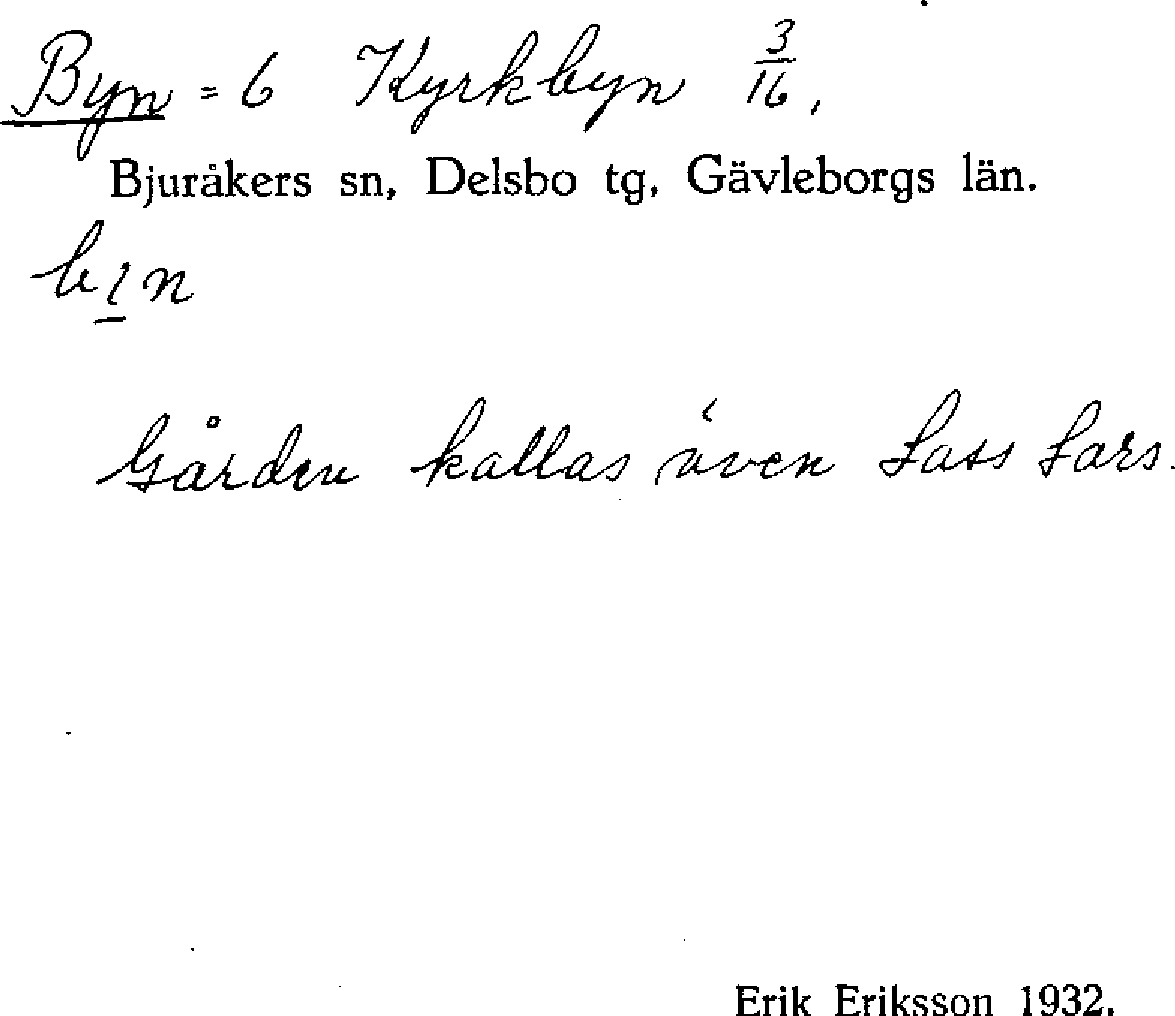 Byn = 6 Kyrkbyn 3/16,
Bjuråkers sn, Delsbo tg, Gävleborgs län.
Gården kallas även Lass Lars.
Erik Eriksson 1932.